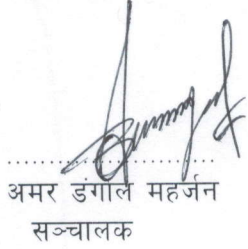 अमर डंगोल महर्जन
सञ्चालक